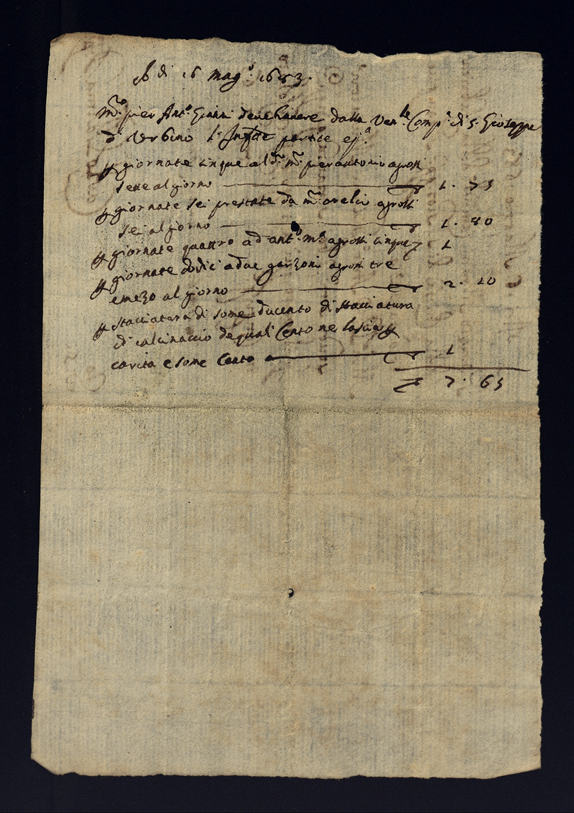 A di 16 mag.º 1653.
M.ro pier Ant.º Gianni deve havere dalla Ven.le Comp.ª di S. Gioseppe
d'Urbino l'Infr.te partite cioè
p giornate cinque al d.º m.ro pier antonio a grossi
sette al giorno 1. 75
p giornate sei prestate da m.ro Aurelio a grossi
sei al giorno 1. 80
p giornate quattro ad ant.º m.ro a grossi cinque 1
p giornate dodici a due garzoni a grossi tre
e mezo al giorno 2. 10
p stacciatura di some ducento di stacciatura
di calcinaccio de quali Cento ne lascia p
carita e some Cento 1
7. 65